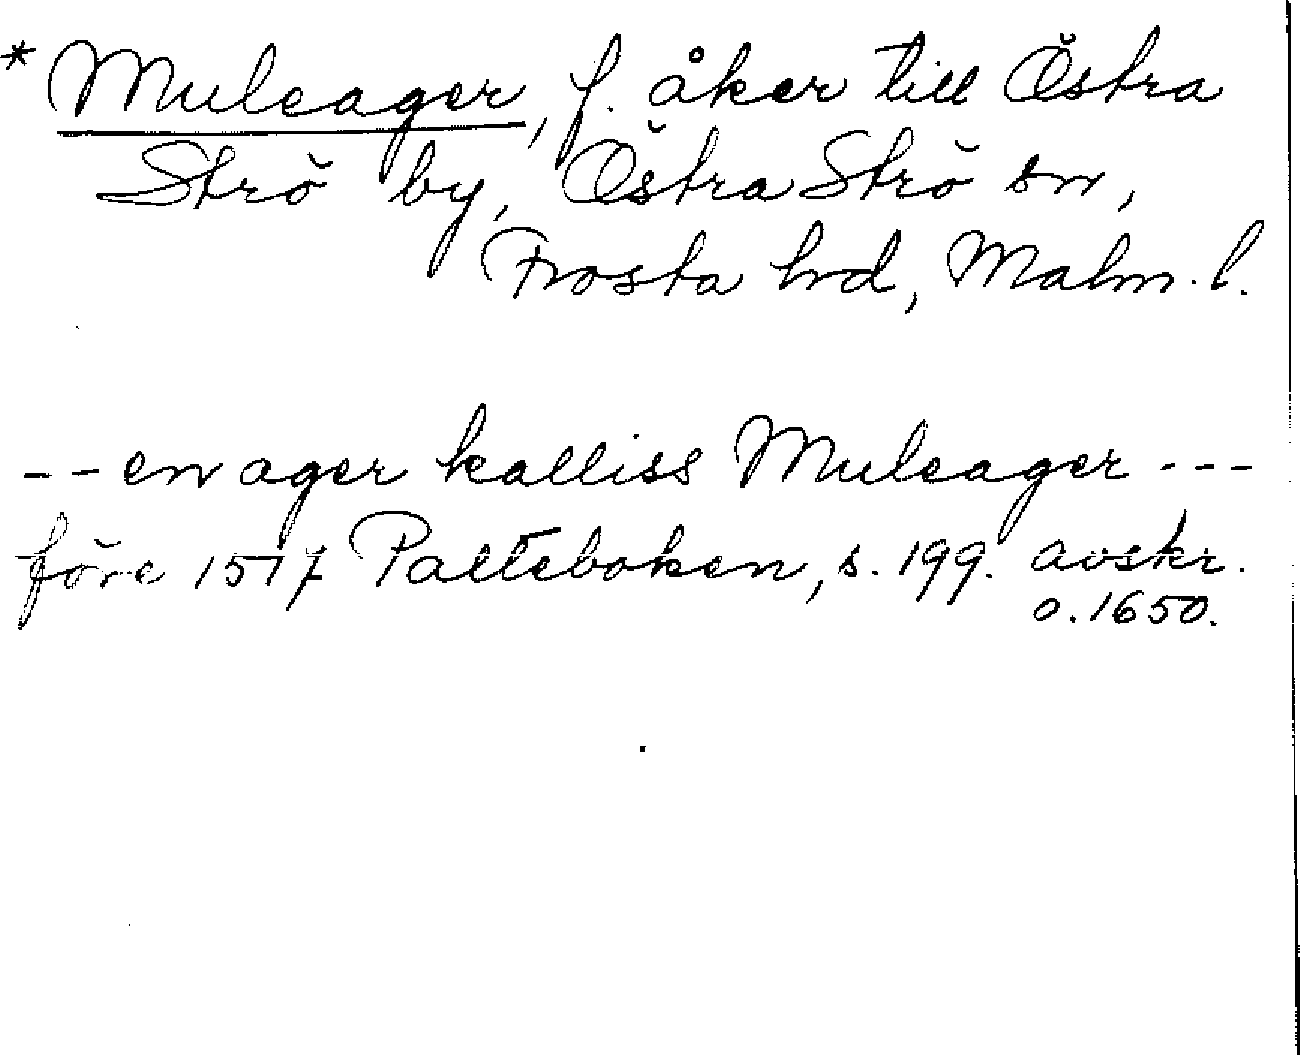 * Muleager, f. åker till Östra
Strö by, Östra Strö sn,
Frosta hd, Malm. l.
-- en ager kalliss Muleager ---
före 1517 Palteboken, s. 199. avskr.
o. 1650.